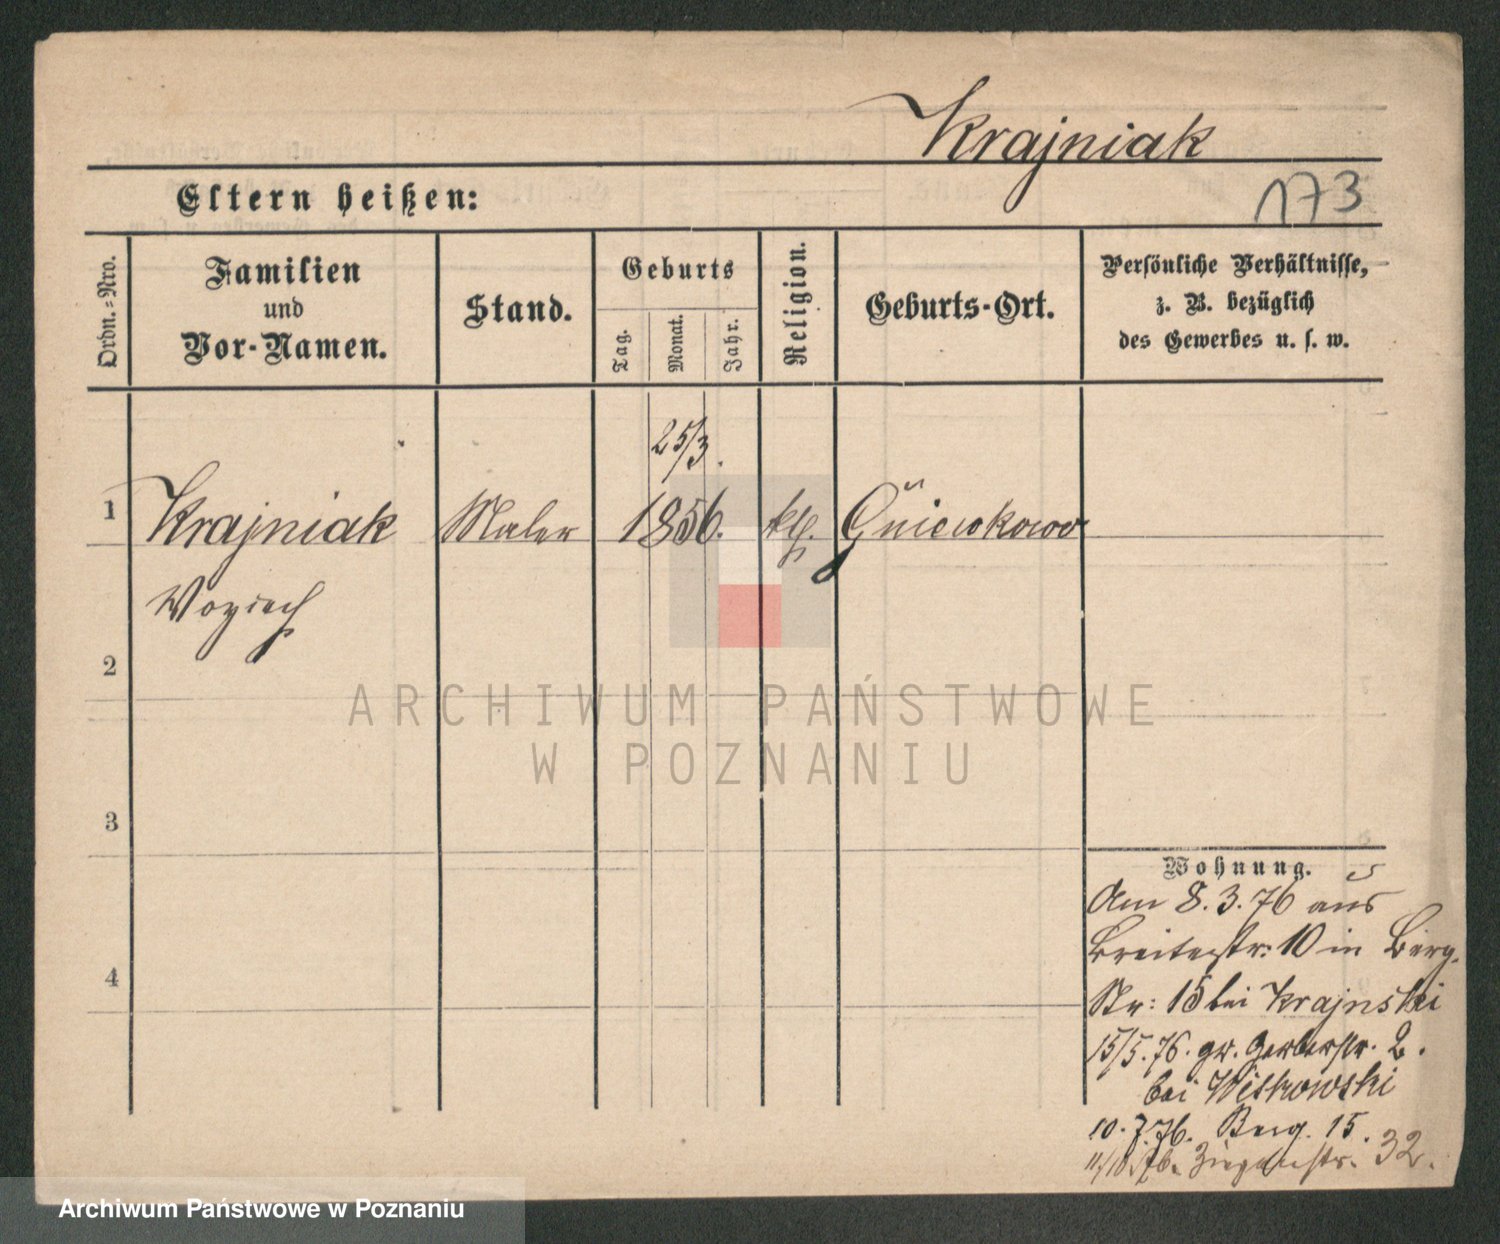 Krajniak
Eltern heißen:
173
Ordn.-Nro.
Familien
und
Vor-Namen.
Stand.
Geburts
Tag.
Monat.
Jahr.
Religion.
Geburts-Ort.
Persönliche Verhältnisse,
z. B. bezüglich
des Gewerbes u. s. w.
25/3.
1 Krajniak Maler 1856. kth. Gniewkowo
Woyciech
2
ARCHIWUM PAŃSTWOWE
W POZNANIU
3
Wohnung.
Am 8.3.76 aus
Breitestr: 10 in Berg.
Str: 15 bei Krajnski
15/5.76. gr. Gerberstr. 2.
bei Witkowski
10.7.76. Berg. 15.
4
11/10.76. Ziegenstr. 32.
Archiwum Państwowe w Poznaniu